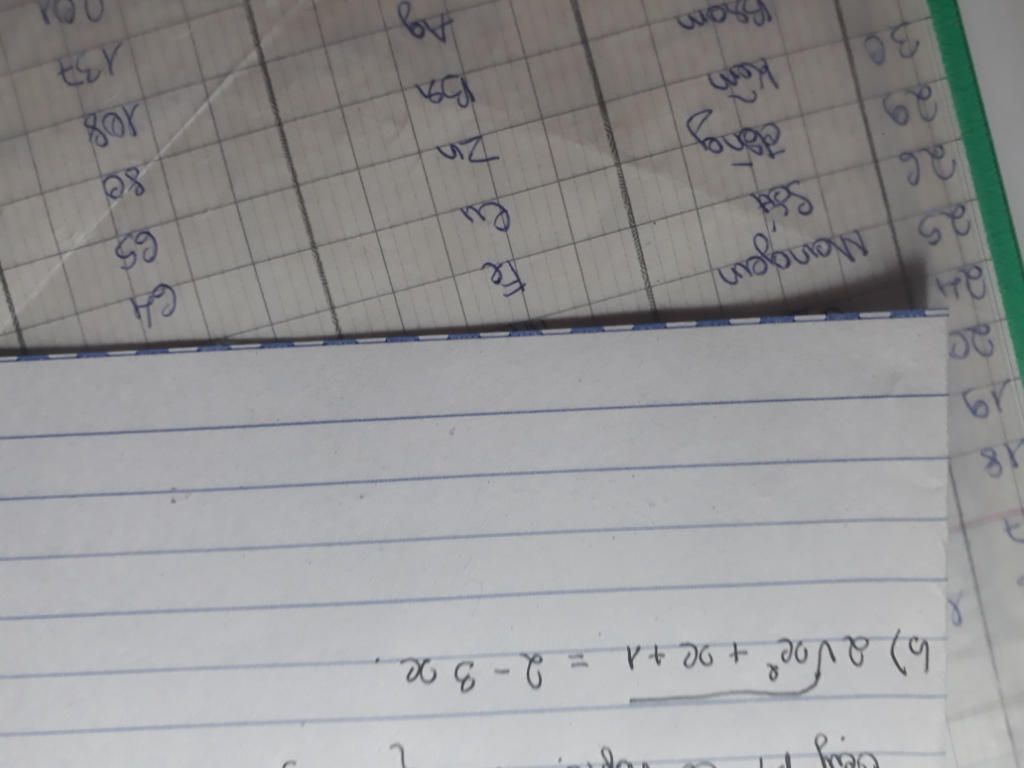 b) 2√x² + x + 1 = 2 - 3x.
18
19
20
24
25 Mangan
26 Sắt Fe
29 Đồng Cu 64
30 Kẽm Zn 65
Brom Br 80
Ag 108
137